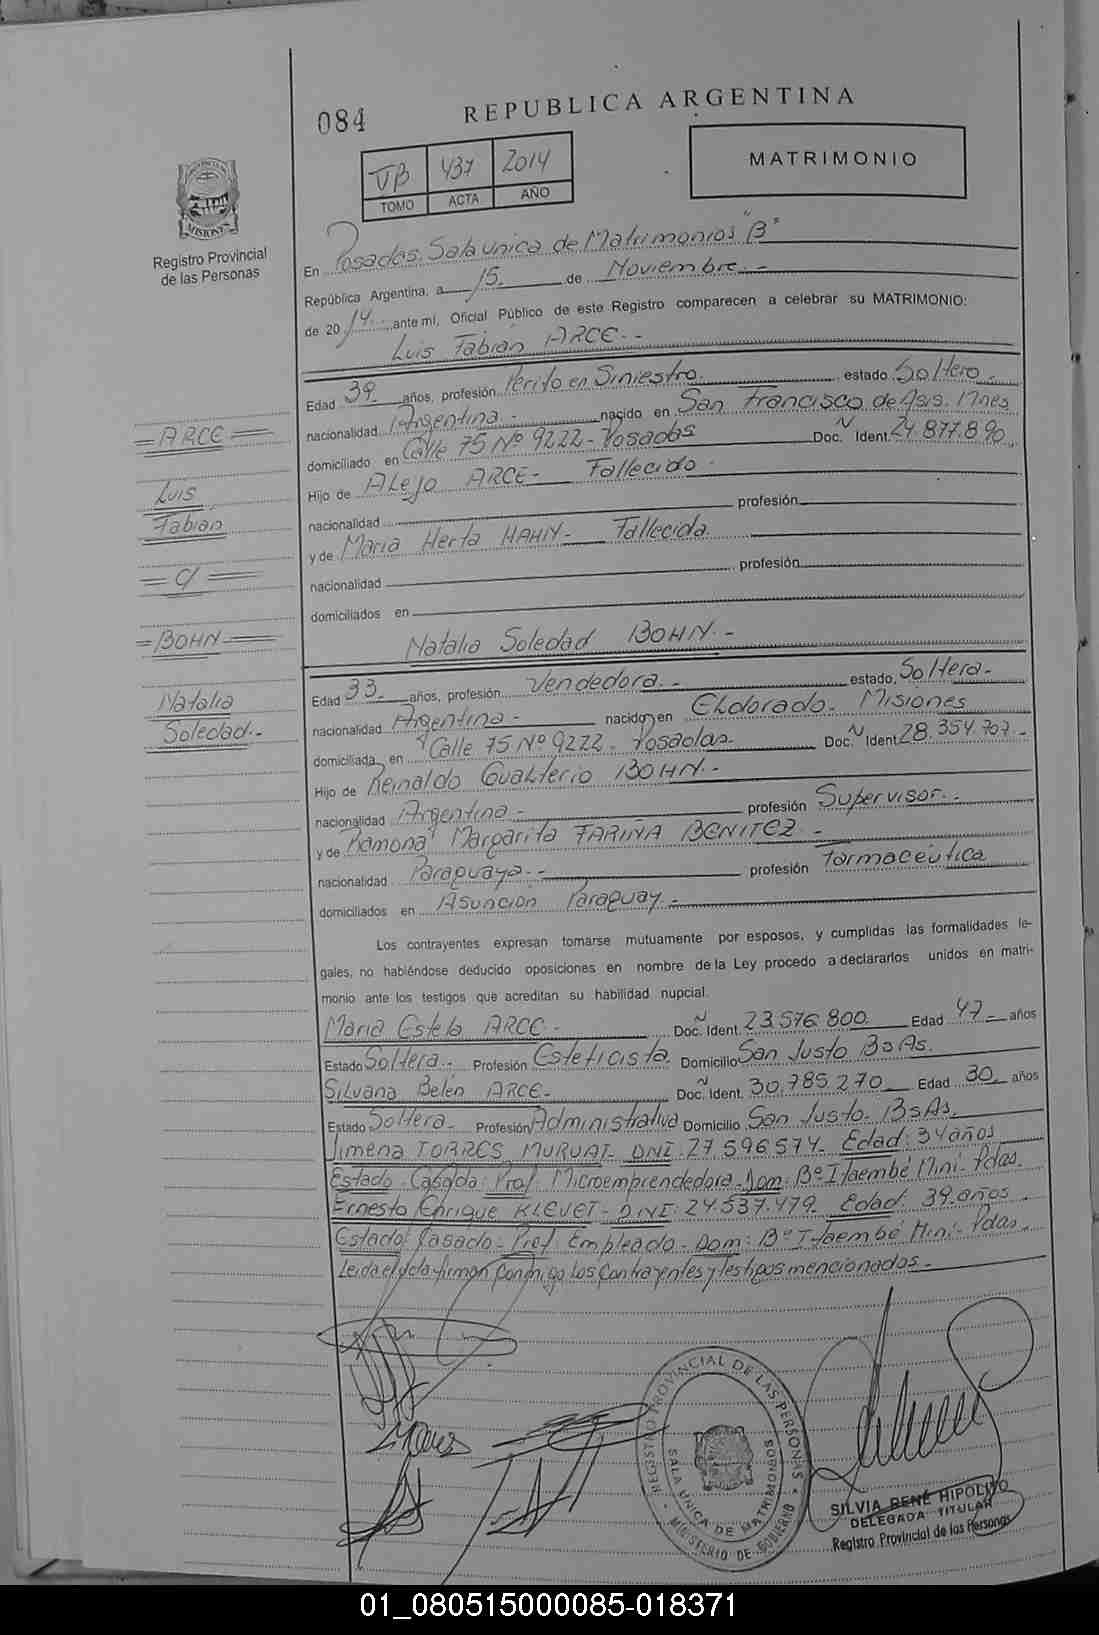 084
REPUBLICA ARGENTINA
VB 437 2014
TOMO ACTA AÑO
MATRIMONIO
PROVINCIA DE
MISIONES
Registro Provincial
de las Personas
En Posadas. Sala unica de Matrimonios "B"
República Argentina, a 15. de Noviembre.-
de 2014.- ante mí, Oficial Público de este Registro comparecen a celebrar su MATRIMONIO:
Luis Fabián ARCE.-
Edad 39. años, profesión Perito en Siniestro. estado Soltero.-
nacionalidad Argentina.- nacido en San Francisco de Asis. Mnes
domiciliado en Calle 75 Nº 9222- Posadas Doc. Ñ Ident. 24.877.890.
Hijo de Alejo ARCE- Fallecido.
nacionalidad profesión
y de Maria Herta HAHN- Fallecida.
nacionalidad profesión
domiciliados en
Natalia Soledad BOHN.-
Edad 33.- años, profesión Vendedora.- estado Soltera.-
nacionalidad Argentina.- nacido en Eldorado. Misiones
domiciliada en Calle 75 Nº 9222. Posadas. Doc. Ñ Ident 28.354.707.-
Hijo de Reinaldo Gualterio BOHN.-
nacionalidad Argentina.- profesión Supervisor.-
y de Ramona Margarita FARIÑA BENITEZ.-
nacionalidad Paraguaya.- profesión Farmacéutica
domiciliados en Asunción Paraguay.-
Los contrayentes expresan tomarse mutuamente por esposos, y cumplidas las formalidades le-
gales, no habiéndose deducido oposiciones en nombre de la Ley procedo a declararlos unidos en matri-
monio ante los testigos que acreditan su habilidad nupcial.
Maria Estela ARCE.- Doc. Ñ Ident. 23.576.800. Edad 47- años
Estado Soltera.- Profesión Esteticista. Domicilio San Justo Bs As.
Silvana Belén ARCE.- Doc. Ñ Ident. 30.785.270 Edad 30. años
Estado Soltera- Profesión Administrativa Domicilio San Justo. Bs As.
Jimena TORRES MURUAT- DNI: 27.596.574- Edad: 34 años
Estado Casada. Prof. Microemprendedora. Dom: Bº Itaembé Mini- Pdas.
Ernesto Enrique KLEVET- DNI: 24.537.479. Edad: 39. años
Estado: Casado- Prof. Empleado- Dom: Bº Itaembé Mini- Pdas.-
Leida el acta firman conmigo los contrayentes y testigos mencionados.-
=ARCE=
Luis
Fabián
=C/=
=BOHN=
Natalia
Soledad.-
REGISTRO PROVINCIAL DE LAS PERSONAS
SALA UNICA DE MATRIMONIOS
MINISTERIO DE GOBIERNO
SILVIA RENÉ HIPOLITO
DELEGADA TITULAR
Registro Provincial de las Personas
01_080515000085-018371